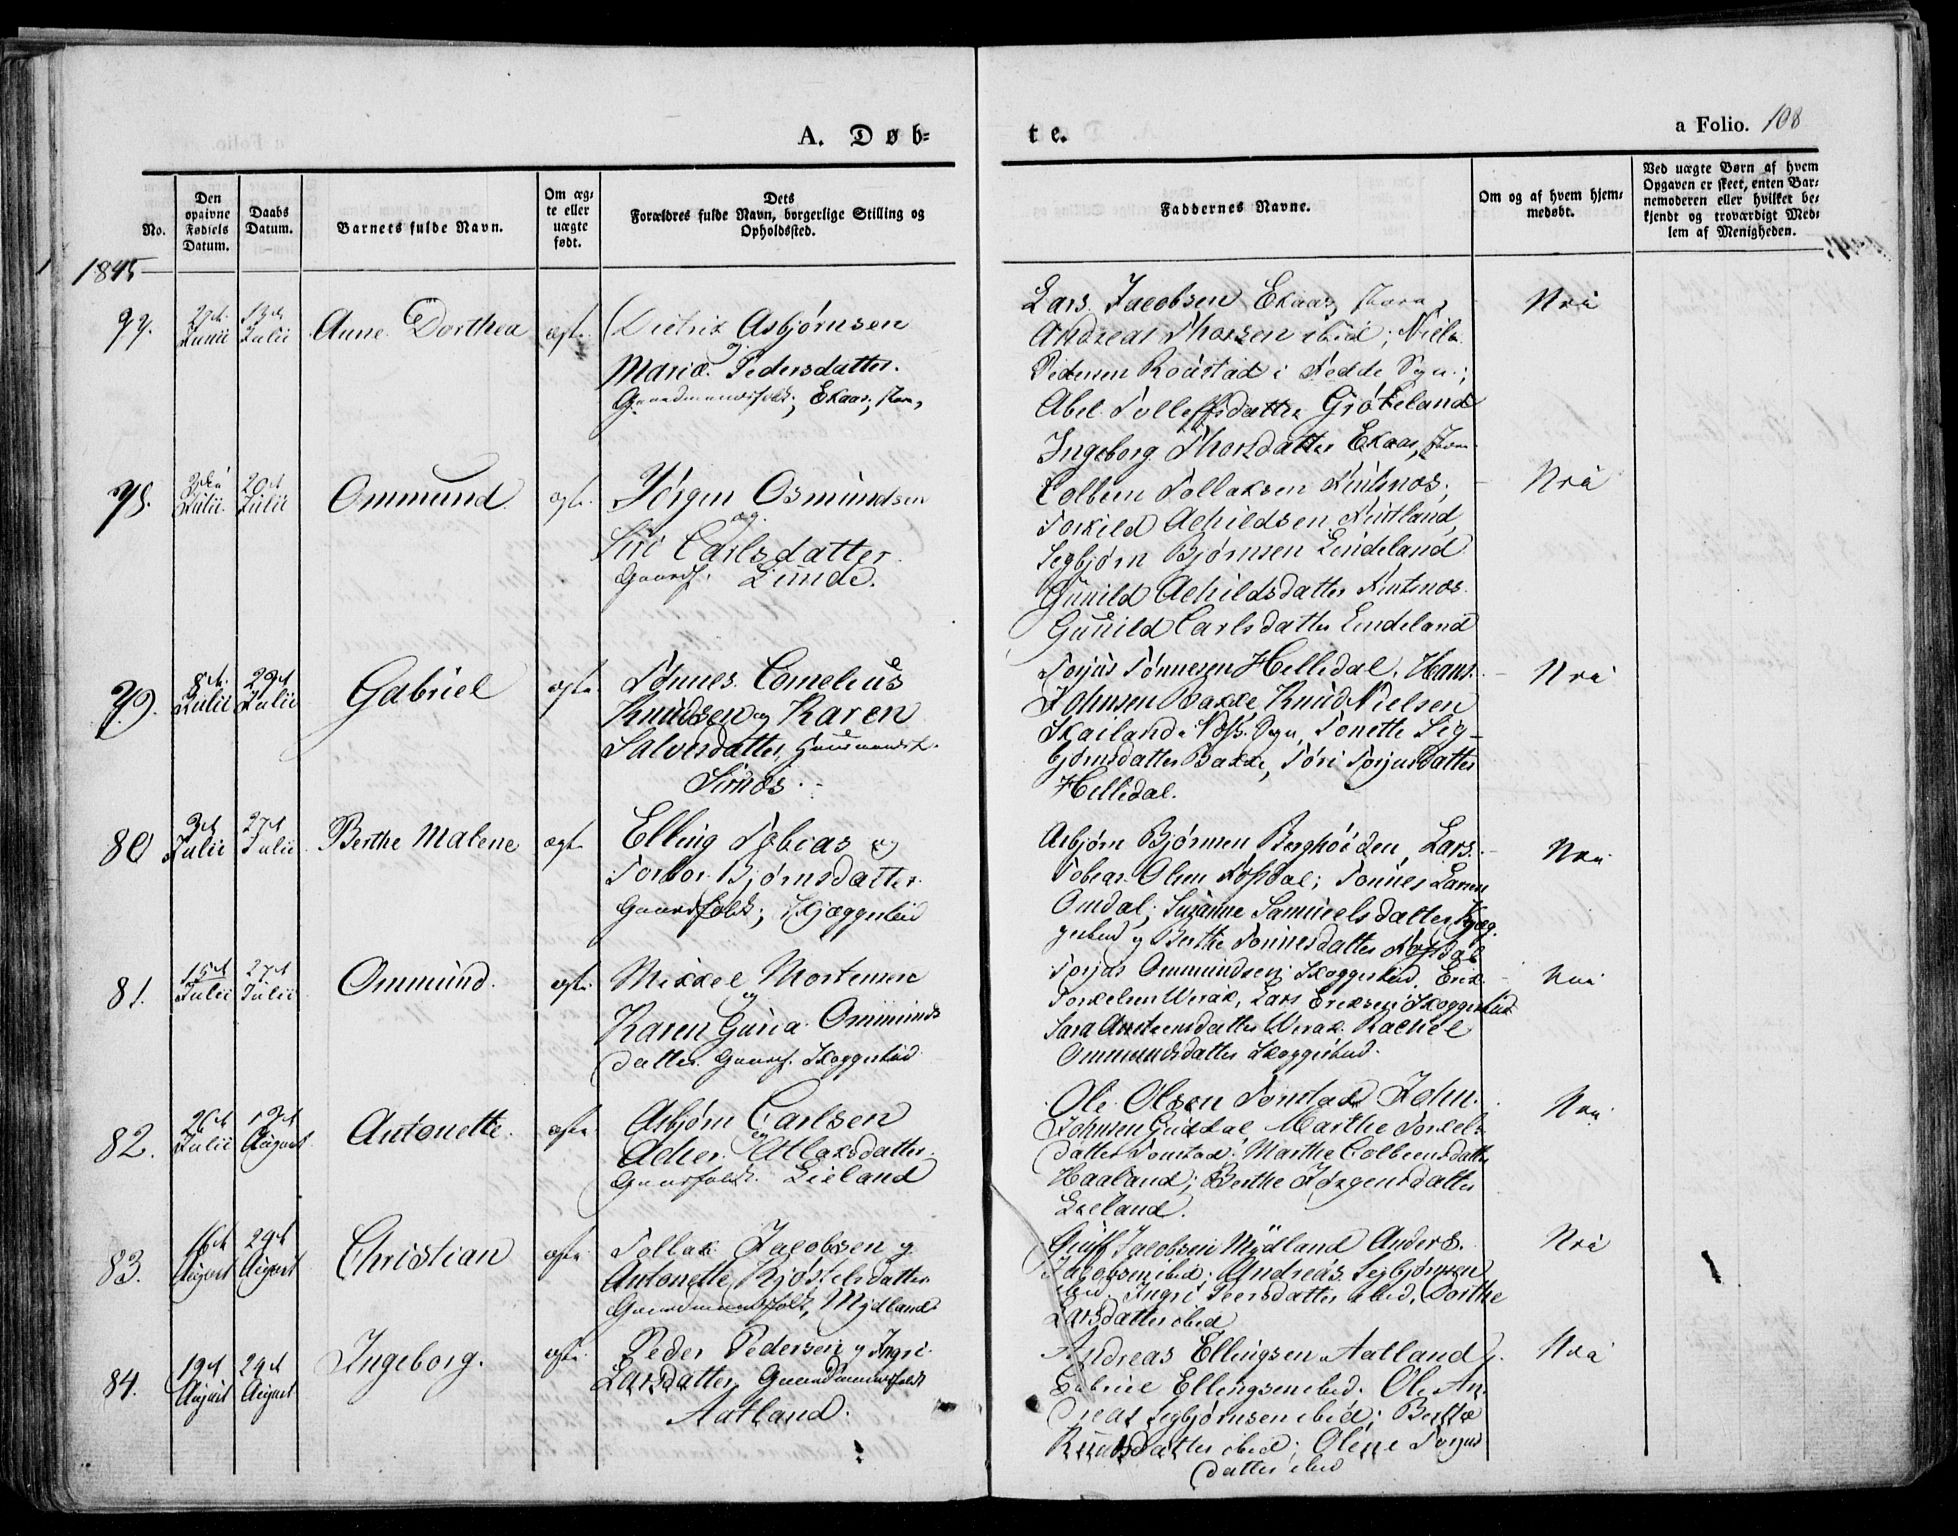 A. Døb=
te.
a Folio. 108
No.
Den opgivne Fødsels Datum.
Daabs Datum.
Barnets fulde Navn.
Om æg=
te eller
uægte
født.
Dets
Forældres fulde Navn, borgerlige Stilling og
Opholdssted.
Faddernes Navne.
Om og af hvem hjem=
medøbt.
Ved uægte Børn af hvem
Opgaven er skeet, enten Bar=
nemoderen eller hvilket be=
kjendt og troværdigt Med=
lem af Menigheden.
1845
77. Junii Julii Anne Dorthea ægte
Dietrik Asbjørnsen
og
Maria Pedersdatter.
Gaardmandsfolk, Ekaas
Lars Jacobsen Ekaas
Andreas Thorsen ibid; Niels
Pedersen Røiestad i Fedde Sogn;
Abel Tollefsdatter Gjøkeland
Ingeborg Thorsdatter Ekaas
Nei
78. Julii 20d Julii Ommund ægte
Jørgen Osmundsen
og
Siri Carlsdatter
Gaardf. Lunde.
Colbein Tollaksen
Torkild Achildsen
Segbjørn Bjørnsen Lindeland
Gunild Achildsdatter
Gunild Carlsdatter Lindeland
Nei
79. 8d Julii 20d Julii Gabriel ægte
Tønnes Cornelius
Knudsen og Karen
Salvesdatter,
Sirnæs.
Torjus Tønnesen Helledal, Hans
Johnsen Bakke, Knud Nielsen
Skailand i Sogn, Tonette Sig=
bjørnsdatter Bakke, Tøri Torjusdatter
Helledal.
Nei
80 3d Julii 27d Julii Berthe Malene ægte
Elling Tobias og
Torbor Bjørnsdatter
Gaardfolk; Skjæggestad
Asbjørn Bjørnsen Lars
Tobias Olsen Røsdal; Tønnes Larsen
Omdal; Susanne Samuelsdatter Skjæg=
gestad og Berthe Tønnesdatter Røsdal
Nei
81. 15d Julii 27d Julii Ommund. ægte
Mikkel Mortensen
og
Karen Guria Ommunds
datter. Gaardf. Skoggestad
Torjus Ommundsen Skoggestad, Erik
Torkelsen Werak, Lars Eriksen Skoggestad
Sara Andreasdatter Werak Rachel
Ommundsdatter Skoggestad.
Nei
82. 26d Julii August Antonette. ægte
Asbjørn Carlsen
og
Acher Atlaksdatter.
Gaardfolk. Lieland
Ole Olsen Tonstad John
Johnsen Guddal, Marthe Torkels=
datter Tonstad, Marthe Colbeinsdatter
Haaland; Berthe Jørgensdatter
Lieland.
Nei
83. 16d August 29d August Christian ægte
Tollak Jacobsen og
Antonette Kjøstelsdatter
Gaardmandsfolk, Mydland
Jacobsen Mydland Anders
Jacobsen ibid; Andreas Segbjørnsen
ibid. Ingri Peersdatter ibid, Dorthe
Larsdatter ibid
Nei
84. 19d August 29d August Ingeborg. ægte
Peder Pedersen og Ingri
Larsdatter Gaardmandsfolk
Aatland.
Andreas Ellingsen Aatland,
Gabriel Ellingsen ibid. Ole An=
dreas Segbjørnsen ibid; Berthe
Knudsdatter ibid; Olene Torjus
datter ibid
Nei